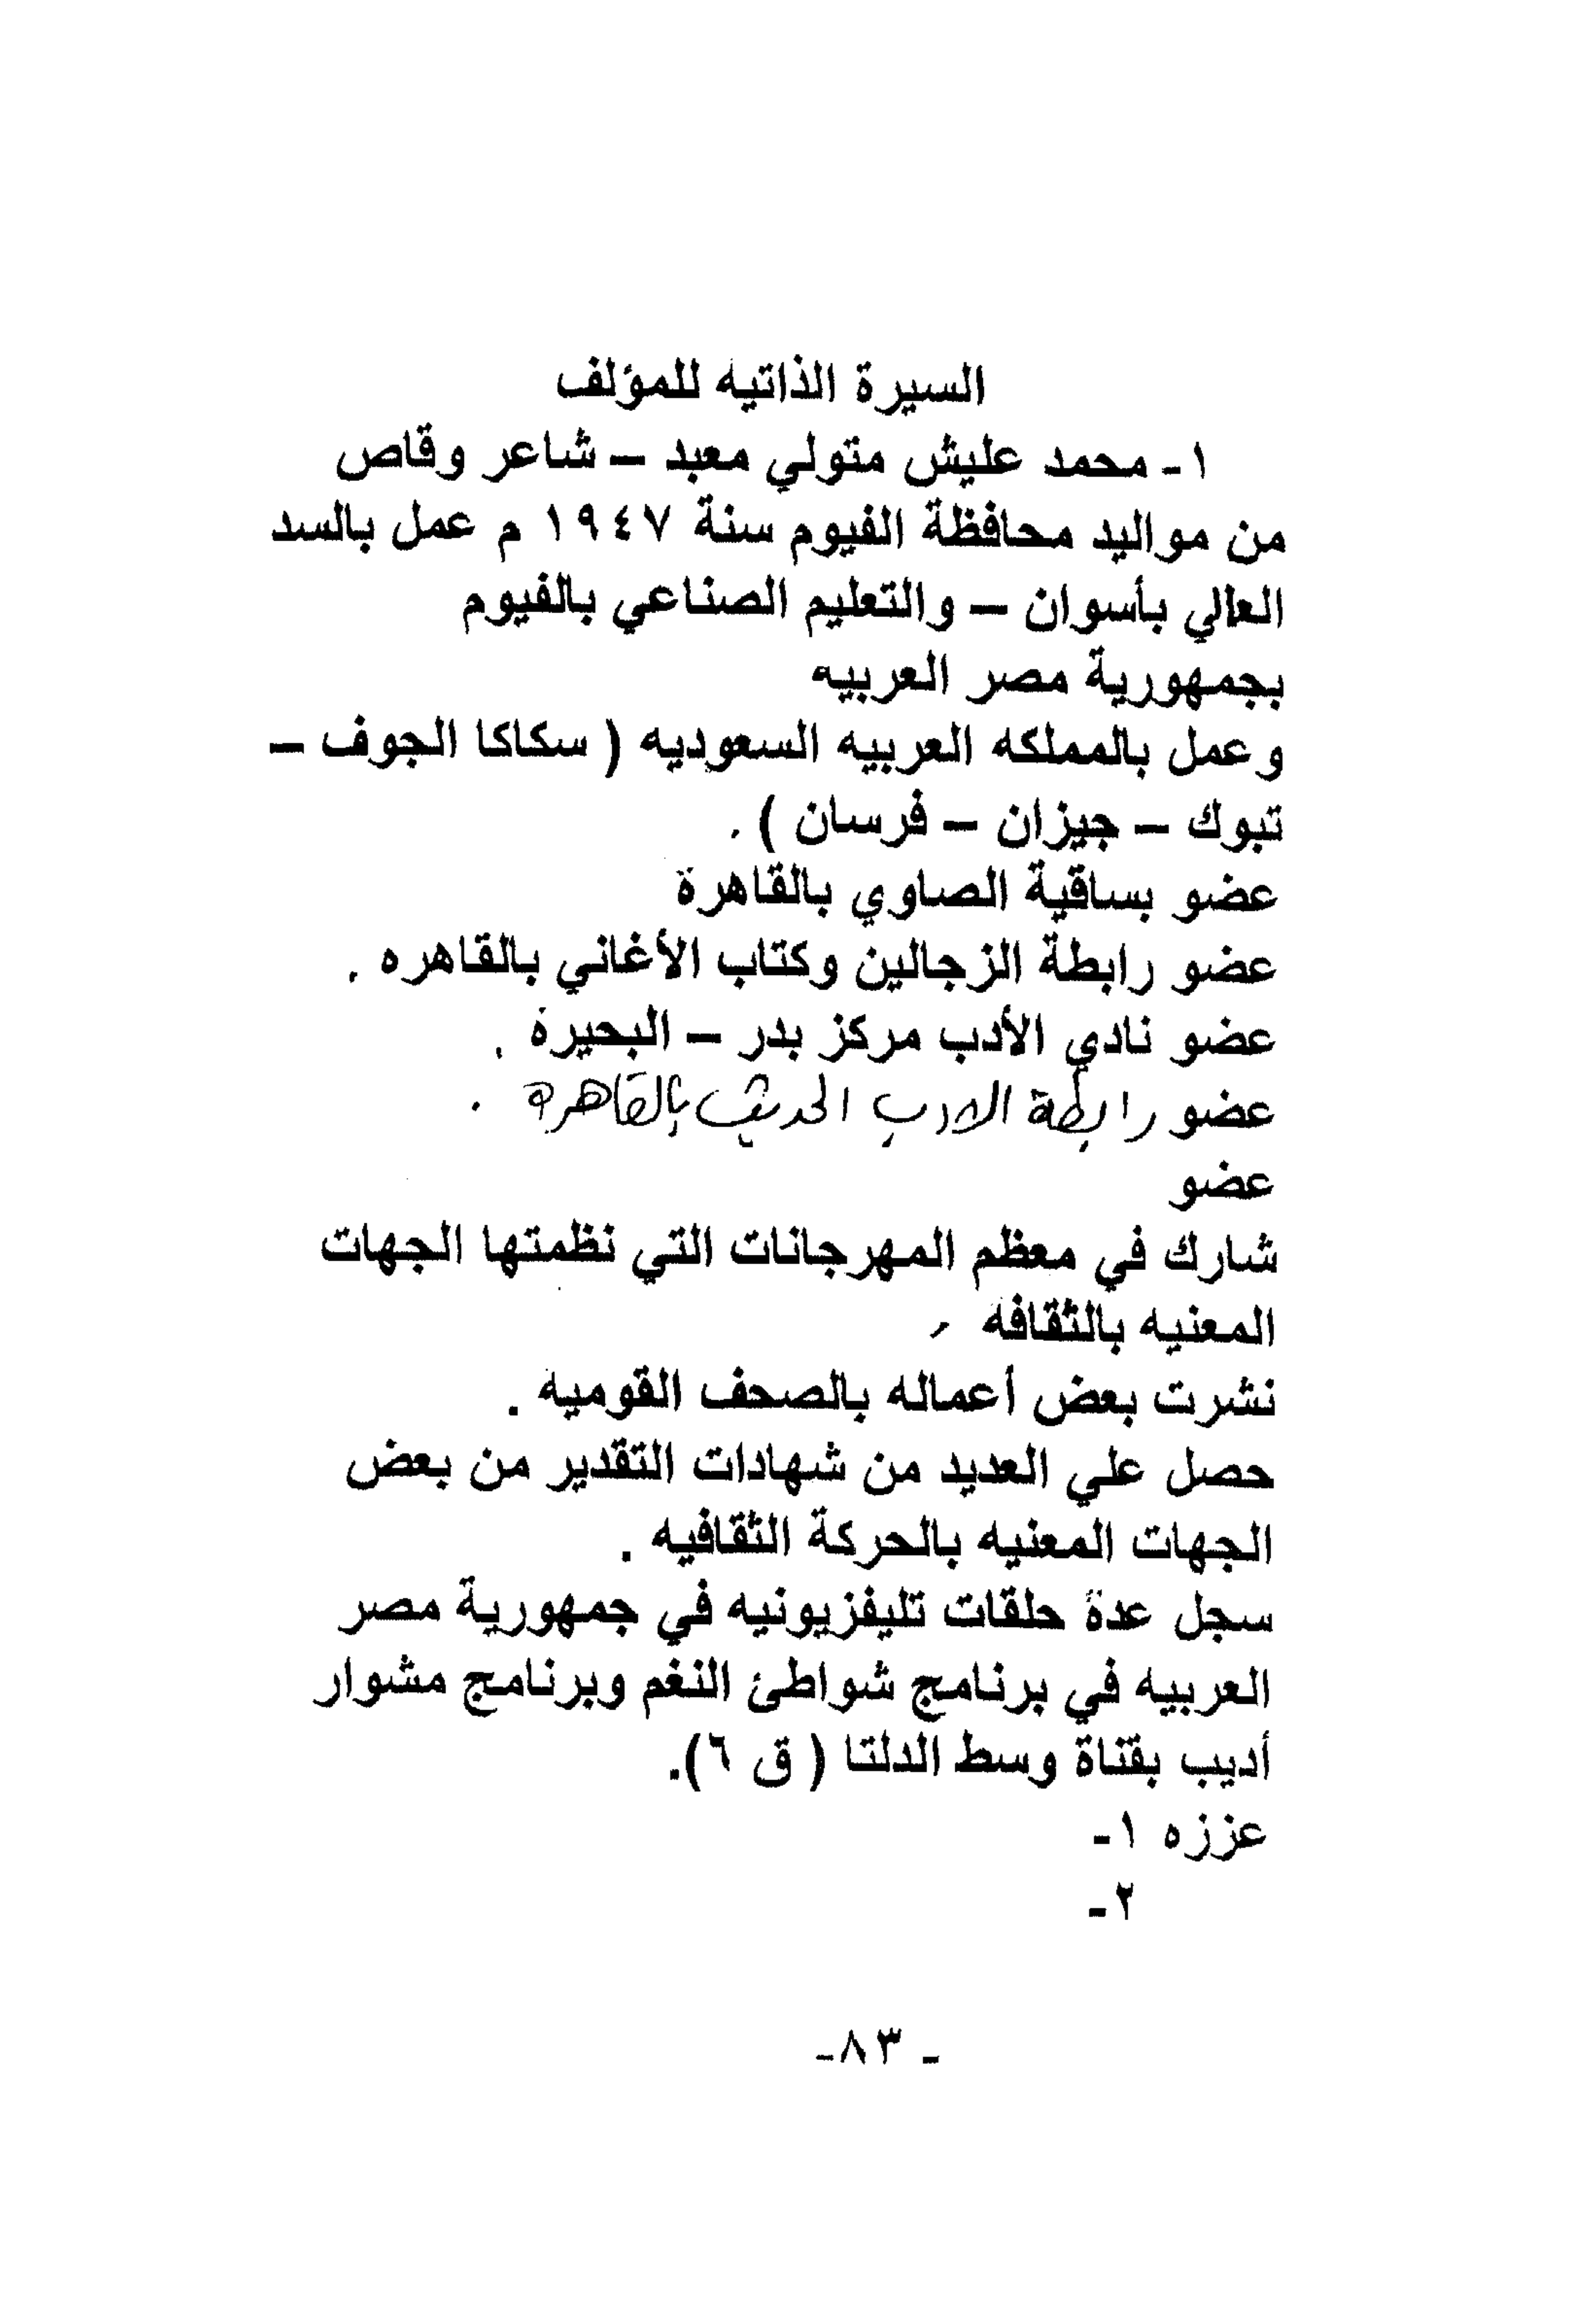 السيرة الذاتيه للمؤلف
١- محمد عليش متولي معبد – شاعر وقاص
من مواليد محافظة الفيوم سنة ١٩٤٧ م عمل بالسد
العالي بأسوان – والتعليم الصناعي بالفيوم
بجمهورية مصر العربيه
وعمل بالمملكه العربيه السعوديه ( سكاكا الجوف –
تبوك – جيزان – فرسان ) .
عضو بساقية الصاوي بالقاهرة
عضو رابطة الزجالين وكتاب الأغاني بالقاهره .
عضو نادي الأدب مركز بدر – البحيرة .
عضو رابطة الادب الحديث بالقاهرة .
عضو
شارك في معظم المهرجانات التي نظمتها الجهات
المعنيه بالثقافه .
نشرت بعض أعماله بالصحف القوميه .
حصل علي العديد من شهادات التقدير من بعض
الجهات المعنيه بالحركة الثقافيه .
سجل عدة حلقات تليفزيونيه في جمهورية مصر
العربيه في برنامج شواطئ النغم وبرنامج مشوار
أديب بقناة وسط الدلتا ( ق ٦).
عززه ١-
٢-
- ٨٣-